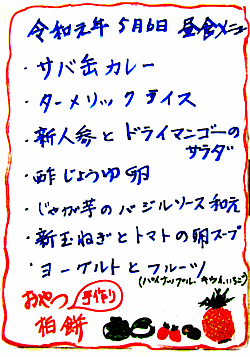 令和元年 5月6日 昼食メニュー
・サバ缶カレー
・ターメリックライス
・新人参とドライマンゴーの
サラダ
・酢じょうゆ卵
・じゃが芋のバジルソース和え
・新玉ねぎとトマトの卵スープ
・ヨーグルトとフルーツ
(パイナップル・キウイ・いちご)
おやつ 手作り
柏餅